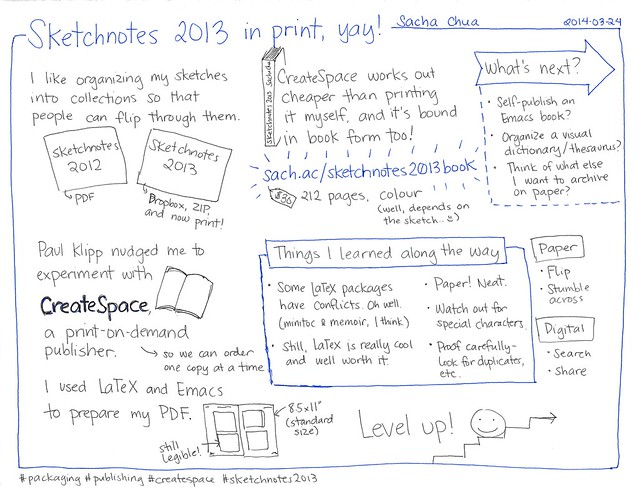 Sketchnotes 2013 in print, yay!
Sacha Chua
2014-03-24
I like organizing my sketches
into collections so that
people can flip through them.
Sketchnotes
2012
PDF
Sketchnotes
2013
Dropbox, ZIP,
and now print!
Sketchnotes 2013 Sacha Chua
CreateSpace works out
cheaper than printing
it myself, and it's bound
in book form too!
sach.ac/sketchnotes2013book
$30
212 pages, colour
(well, depends on
the sketch...☺)
What's next?
• Self-publish an
Emacs book?
• Organize a visual
dictionary/thesaurus?
• Think of what else
I want to archive
on paper?
Paul Klipp nudged me to
experiment with
CreateSpace,
a print-on-demand
publisher.
so we can order
one copy at a time
I used LaTeX and Emacs
to prepare my PDF.
still
legible!
8.5x11"
(standard
size)
Things I learned along the way
• Some LaTeX packages
have conflicts. Oh well.
(minitoc & memoir, I think)
• Still, LaTeX is really cool
and well worth it.
• Paper! Neat.
• Watch out for
special characters.
• Proof carefully-
look for duplicates,
etc.
Paper
• Flip
• Stumble
across
Digital
• Search
• Share
Level up!
#packaging #publishing #createspace #sketchnotes2013